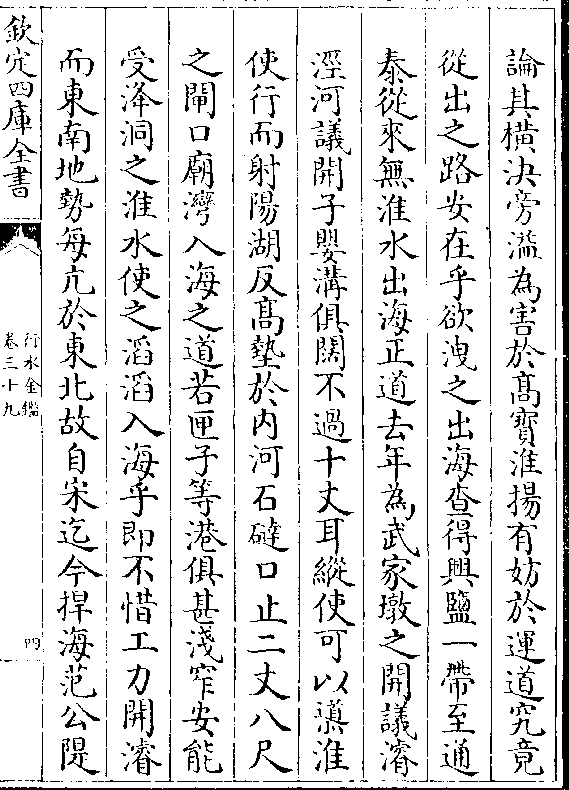 論其橫決旁溢為害於髙寳淮揚有妨於運道究竟
從出之路安在乎欲洩之出海查得興鹽一帶至通
泰從來無淮水出海正道去年為武家墩之開議濬
涇河議開子嬰溝俱闊不過十丈耳縱使可以導淮
使行而射陽湖反髙墊於内河石䃶口止二丈八尺
之閘口廟灣入海之道若匣子等港俱甚淺窄安能
受洚洞之淮水使之滔滔入海乎即不惜工力開濬
而東南地勢每亢於東北故自宋迄今捍海范公隄
欽定四庫全書
行水金鑑
卷三十九
四